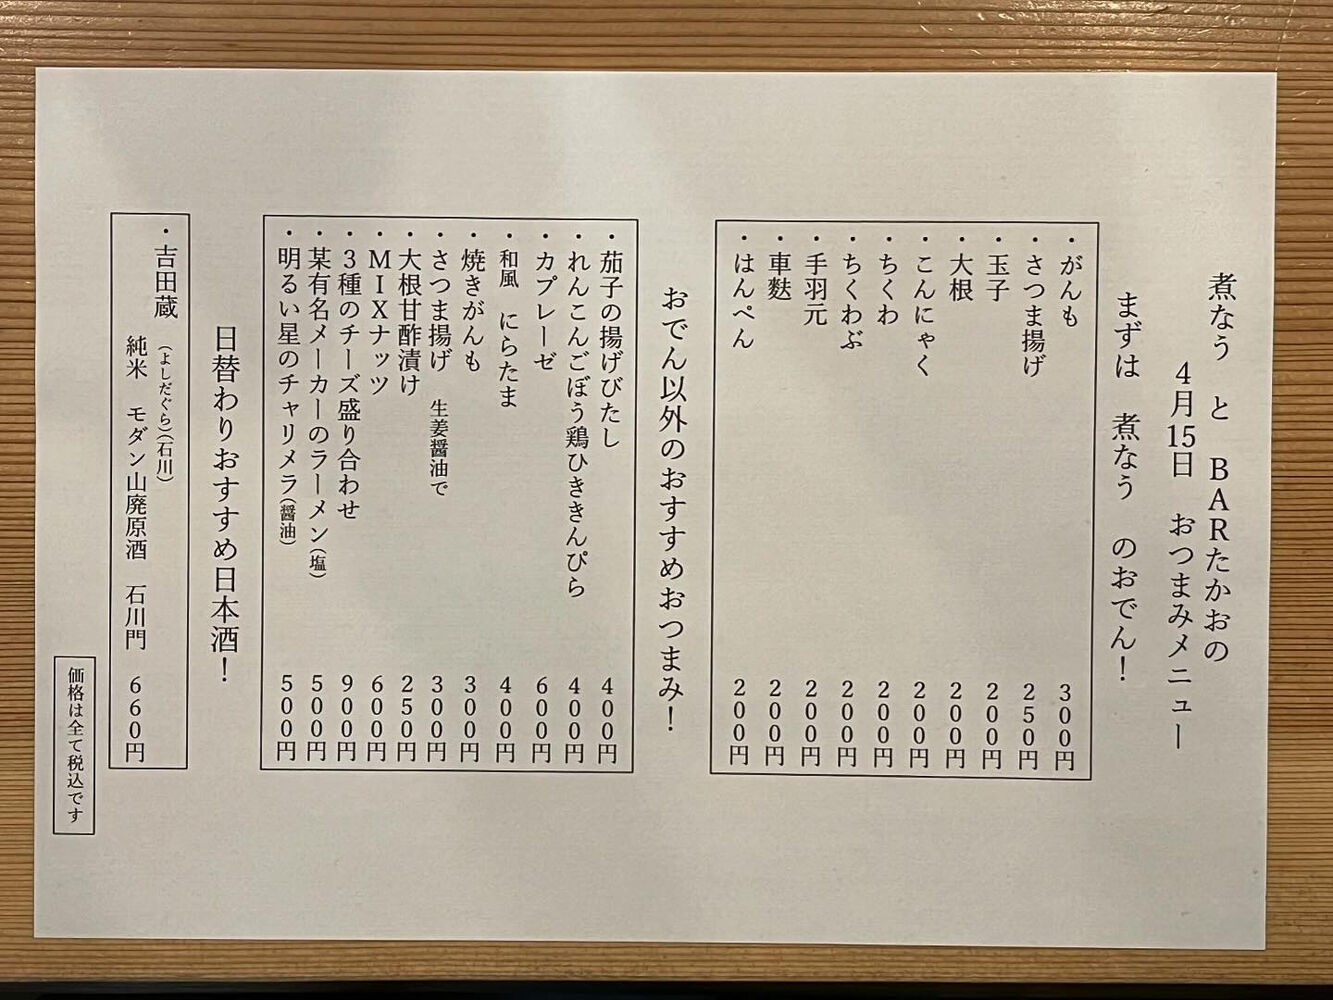 煮なう と BARたかおの
4月15日 おつまみメニュー
まずは 煮なう のおでん！
・がんも 300円
・さつま揚げ 250円
・玉子 200円
・大根 200円
・こんにゃく 200円
・ちくわ 200円
・ちくわぶ 200円
・手羽元 200円
・車麩 200円
・はんぺん 200円
おでん以外のおすすめおつまみ！
・茄子の揚げびたし 400円
・れんこんごぼう鶏ひききんぴら 400円
・カプレーゼ 600円
・和風 にらたま 400円
・焼きがんも 300円
・さつま揚げ 生姜醤油で 300円
・大根甘酢漬け 250円
・MIXナッツ 600円
・3種のチーズ盛り合わせ 900円
・某有名メーカーのラーメン(塩) 500円
・明るい星のチャリメラ(醤油) 500円
日替わりおすすめ日本酒！
・吉田蔵 (よしだぐら)(石川)
純米 モダン山廃原酒 石川門 660円
価格は全て税込です